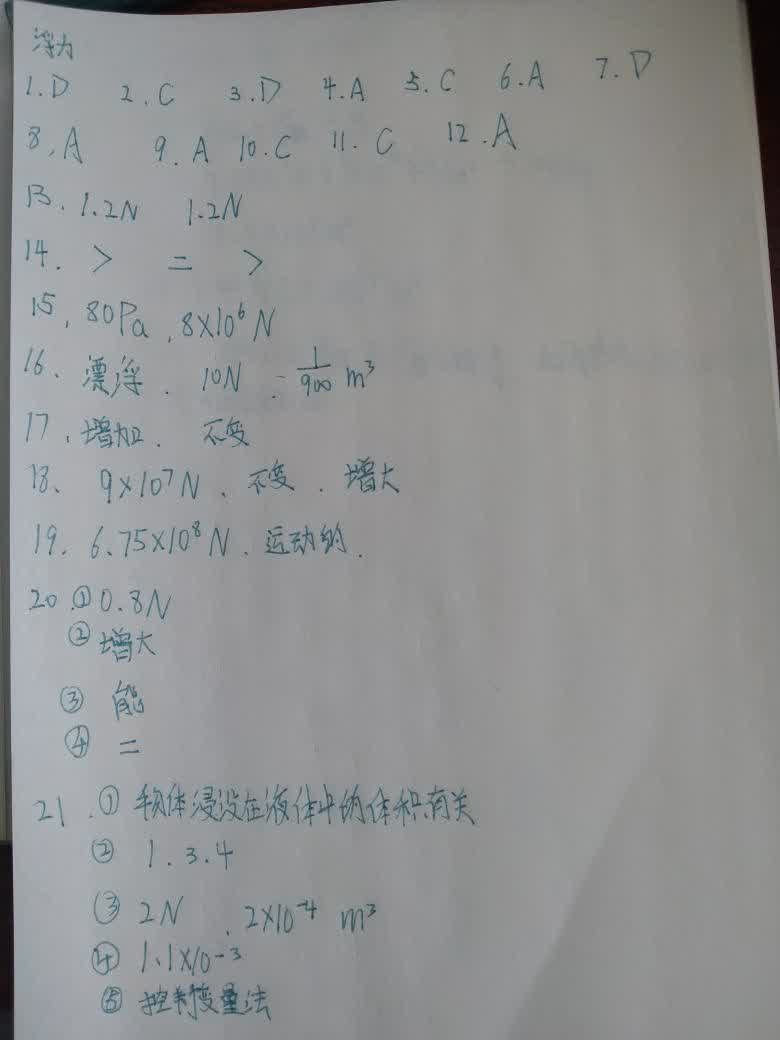 浮力
1.D 2.C 3.D 4.A 5.C 6.A 7.D
8.A 9.A 10.C 11.C 12.A
13. 1.2N 1.2N
14. > = >
15. 80Pa. 8×10⁶N
16. 漂浮. 10N. 1/900 m³
17. 增加. 不变
18. 9×10⁷N. 不变. 增大
19. 6.75×10⁸N. 运动的.
20.①0.8N
②增大
③ 能
④ =
21.① 物体浸没在液体中的体积有关
② 1.3.4
③ 2N. 2×10⁻⁴ m³
④ 1.1×10⁻³
⑤ 控制变量法